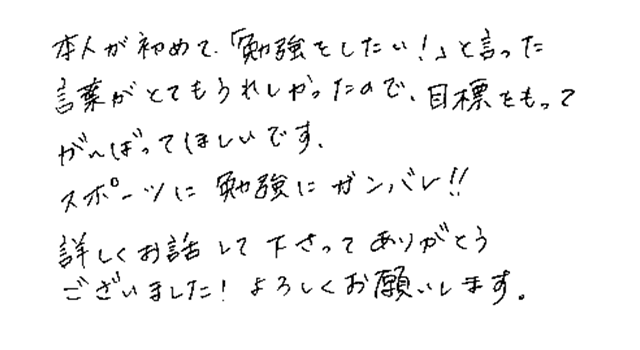 本人が初めて、「勉強をしたい!」と言った
言葉がとてもうれしかったので、目標をもって
がんばってほしいです、
スポーツに勉強にガンバレ!!
詳しくお話して下さってありがとう
ございました!よろしくお願いします。